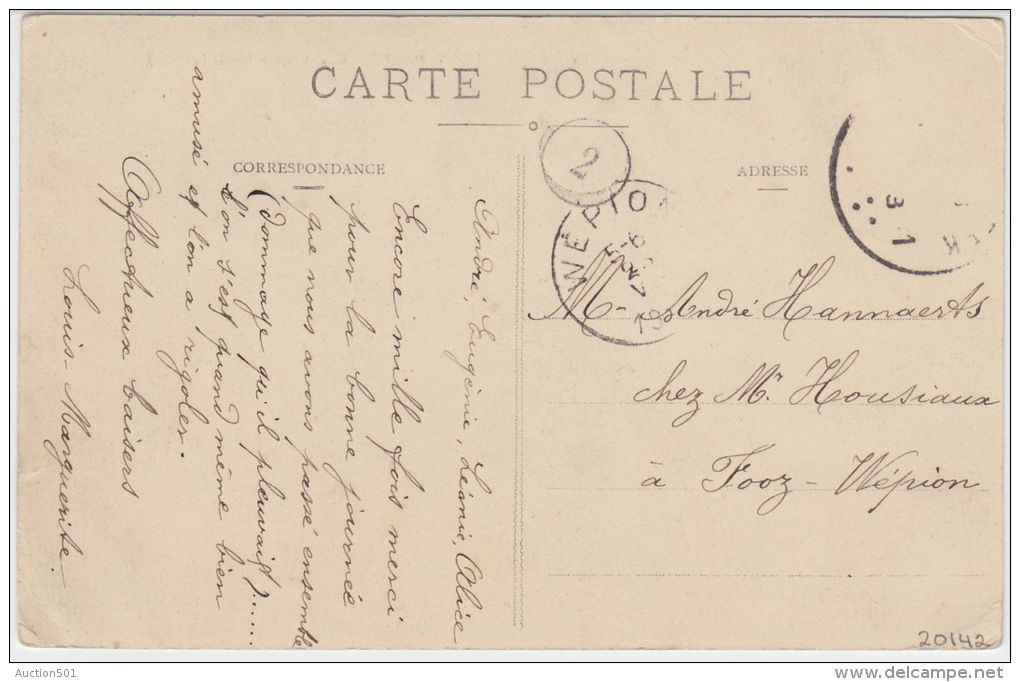 CARTE POSTALE
CORRESPONDANCE
ADRESSE
2
WÉPION
André, Eugénie, Léonie, Alice
Encore mille fois merci
pour la bonne journée
que nous avons passé ensemble
(dommage qu'il pleuvait)......
l'on s'est quand même bien
amusé et l'on a rigoler.
Affectueux baisers
Louis-Marguerite.
Mr André Hannaerts
chez Mr. Housiaux
à Fooz-Wépion
20142
Auction501
www.delcampe.net